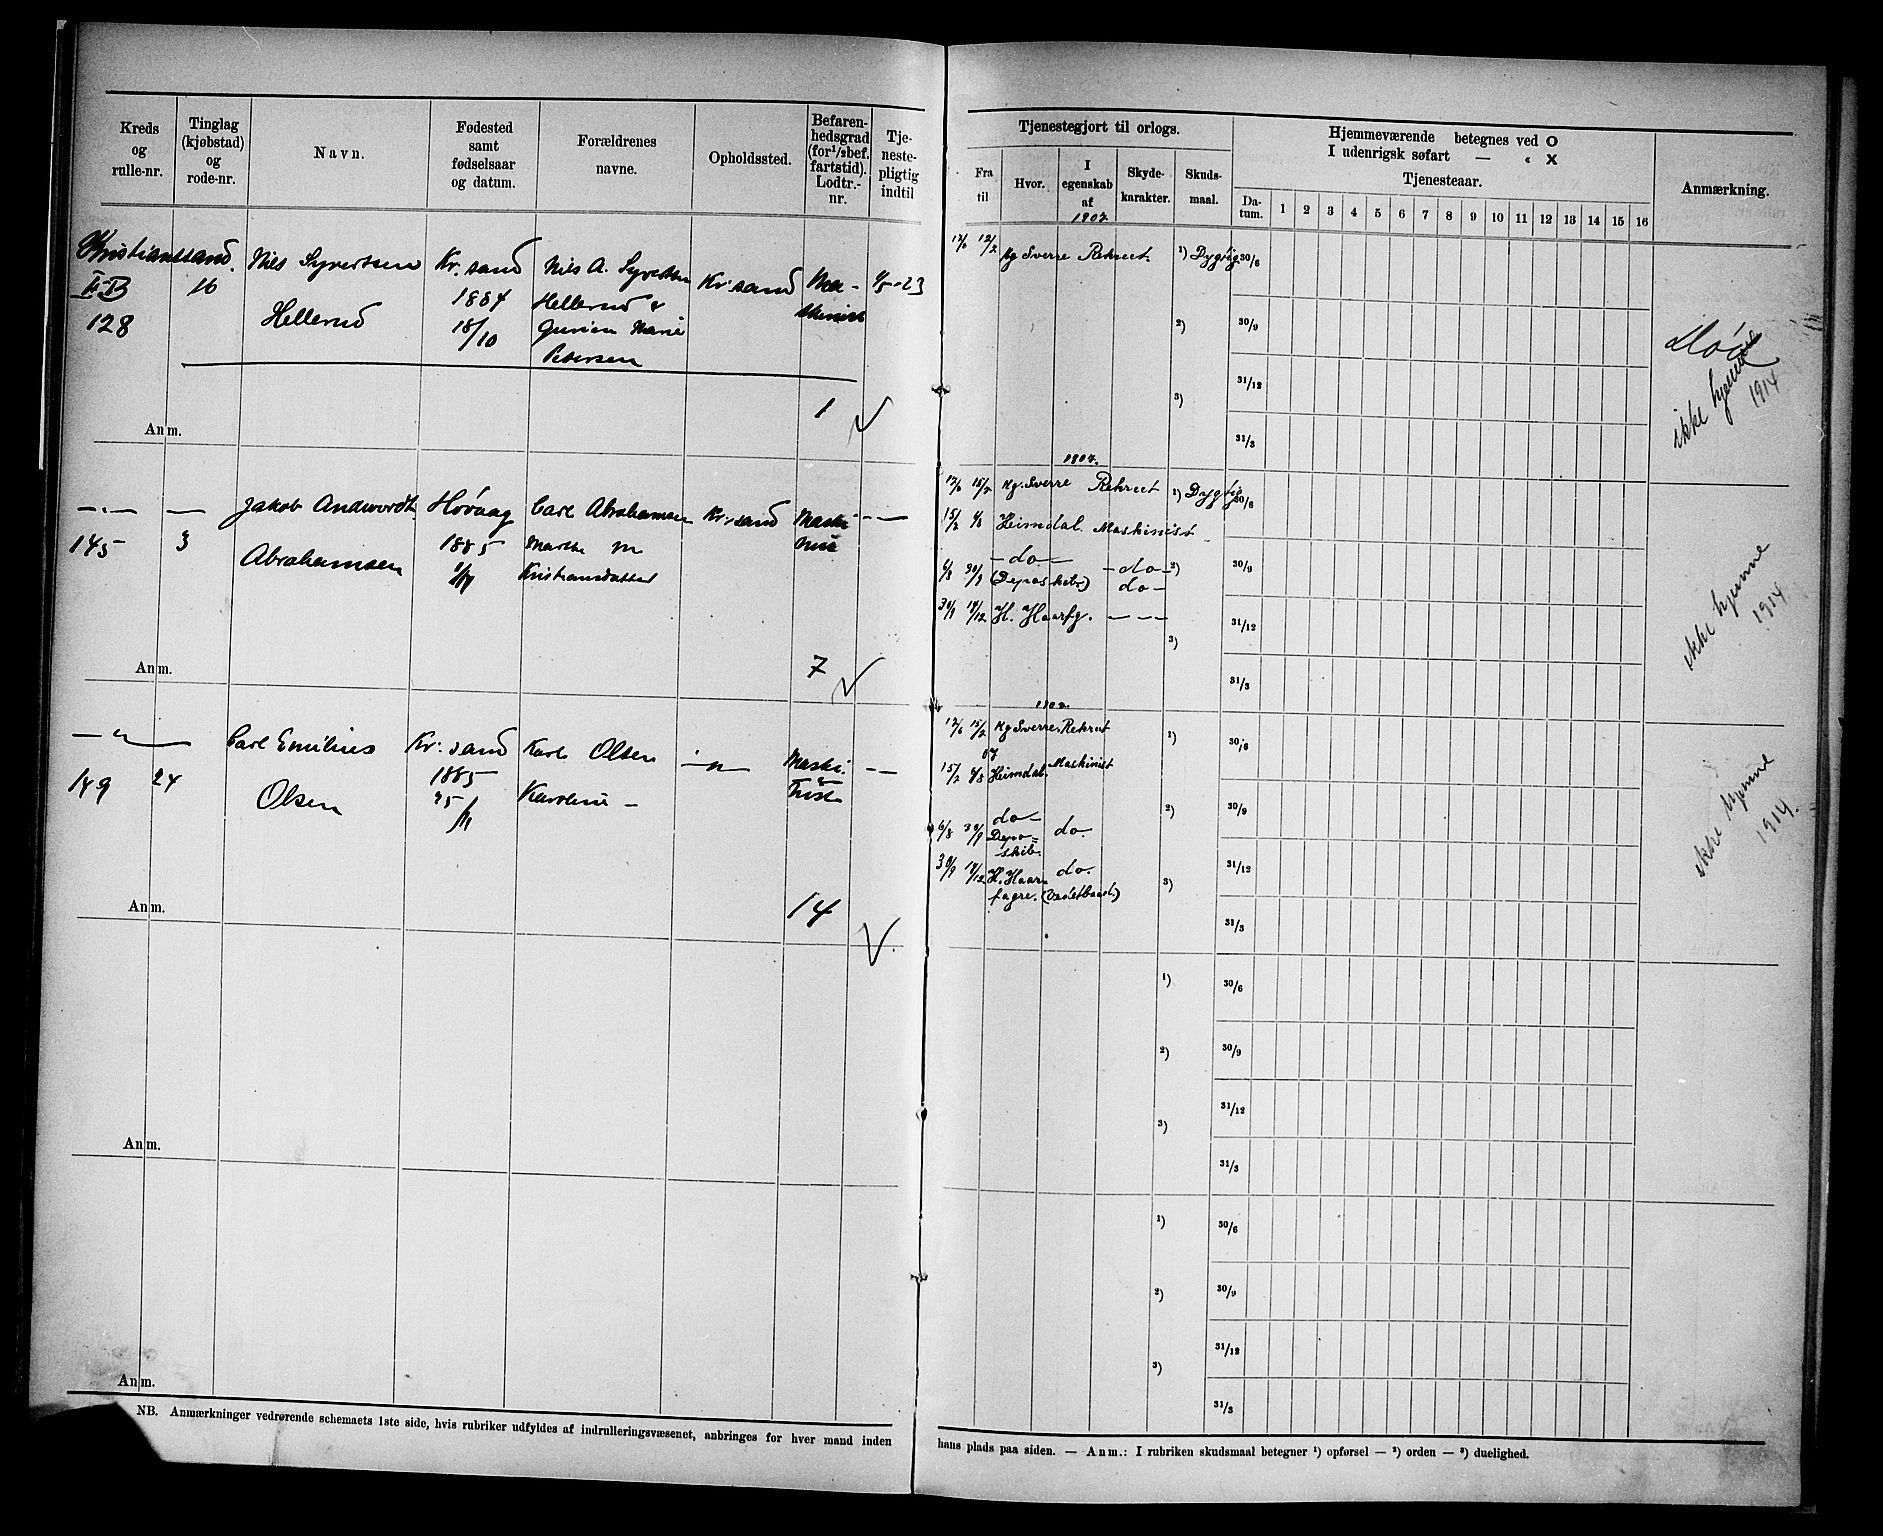 Kreds og rulle-nr.
Tinglag (kjøbstad) og rode-nr.
Navn.
Fødested samt fødselsaar og datum.
Forældrenes navne.
Opholdssted.
Befaren-hedsgrad (for 1/2 bef. fartstid). Lodtr.-nr.
Tje-neste-pligtig indtil
Tjenestegjort til orlogs.
Fra til
Hvor.
I egenskab af
Skyde-karakter.
Skuds-maal.
Hjemmeværende betegnes ved O
I udenrigsk søfart — " X
Tjenesteaar.
Da-tum.
1 2 3 4 5 6 7 8 9 10 11 12 13 14 15 16
Anmærkning.
Kristianssand.
II B
128
16
Nils Syvertsen
Hellerud
Kr. sand
1884
18/10
Nils A. Syvertsen
Hellerud &
Marie
Petersen
Kr. sand
Ma-
skinist
1/5-23
1
Anm.
1907
12/6 12/2
Kg Sverre
Rekrut.
1) Dygtig
2)
3)
30/6
30/9
31/12
31/3
Død
ikke hjemme
1914
—"— —
145
3
Jakob Andvordt
Abrahamsen
Høvaag
1885
Carl Abrahamsen
Marthe M
Kristiansdatter
Kr. sand
Maski
nist
—
7
Anm.
1907.
12/6 15/2 Kg. Sverre Rekrut
1) Dygtig
15/2 6/8 Heimdal. Maskinist
6/8 30/9 —do— (Depotskib.) —do—
do—
30/9 14/12 H. Haarfg. — — —
2)
3)
30/6
30/9
31/12
31/3
ikke hjemme
1914
—"— —
149
24
Carl Emilius
Olsen
Kr. sand
1885
25/11
Karl Olsen
Karoline —
—"—
Maski.
nist
—
14
Anm.
12/6 15/2 Kg Sverre. Rekrut
07
15/2 6/8 Heimdal. Maskinist
6/8 30/9 do— Depo-skib. do.
30/9 14/12 H. Haar-fagre. do.
1)
2)
3)
30/6
30/9
31/12
31/3
ikke hjemme
1914.
Anm.
1)
2)
3)
30/6
30/9
31/12
31/3
Anm.
1)
2)
3)
30/6
30/9
31/12
31/3
NB. Anmærkninger vedrørende schemaets 1ste side, hvis rubriker udfyldes af indrulleringsvæsenet, anbringes for hver mand inden
hans plads paa siden. — Anm.: I rubriken skudsmaal betegner 1) opførsel — 2) orden — 3) duelighed.